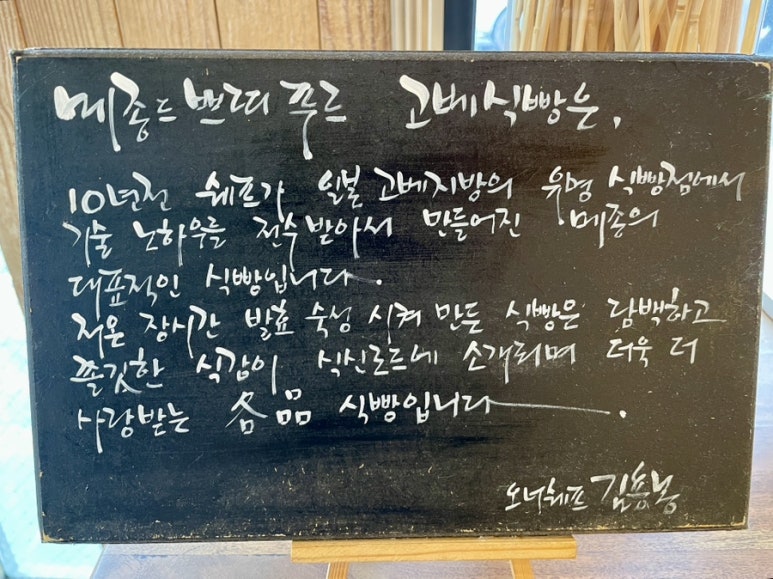 메종드 쁘띠 푸르 고베식빵은,
10년전 쉐프가 일본 고베지방의 유명 식빵점에서
기술 노하우를 전수 받아서 만들어진 메종의
대표적인 식빵입니다.
저온 장시간 발효 숙성 시켜 만든 식빵은 담백하고
쫄깃한 식감이 식신로드에 소개되며 더욱 더
사랑받는 名品 식빵입니다.
오너쉐프